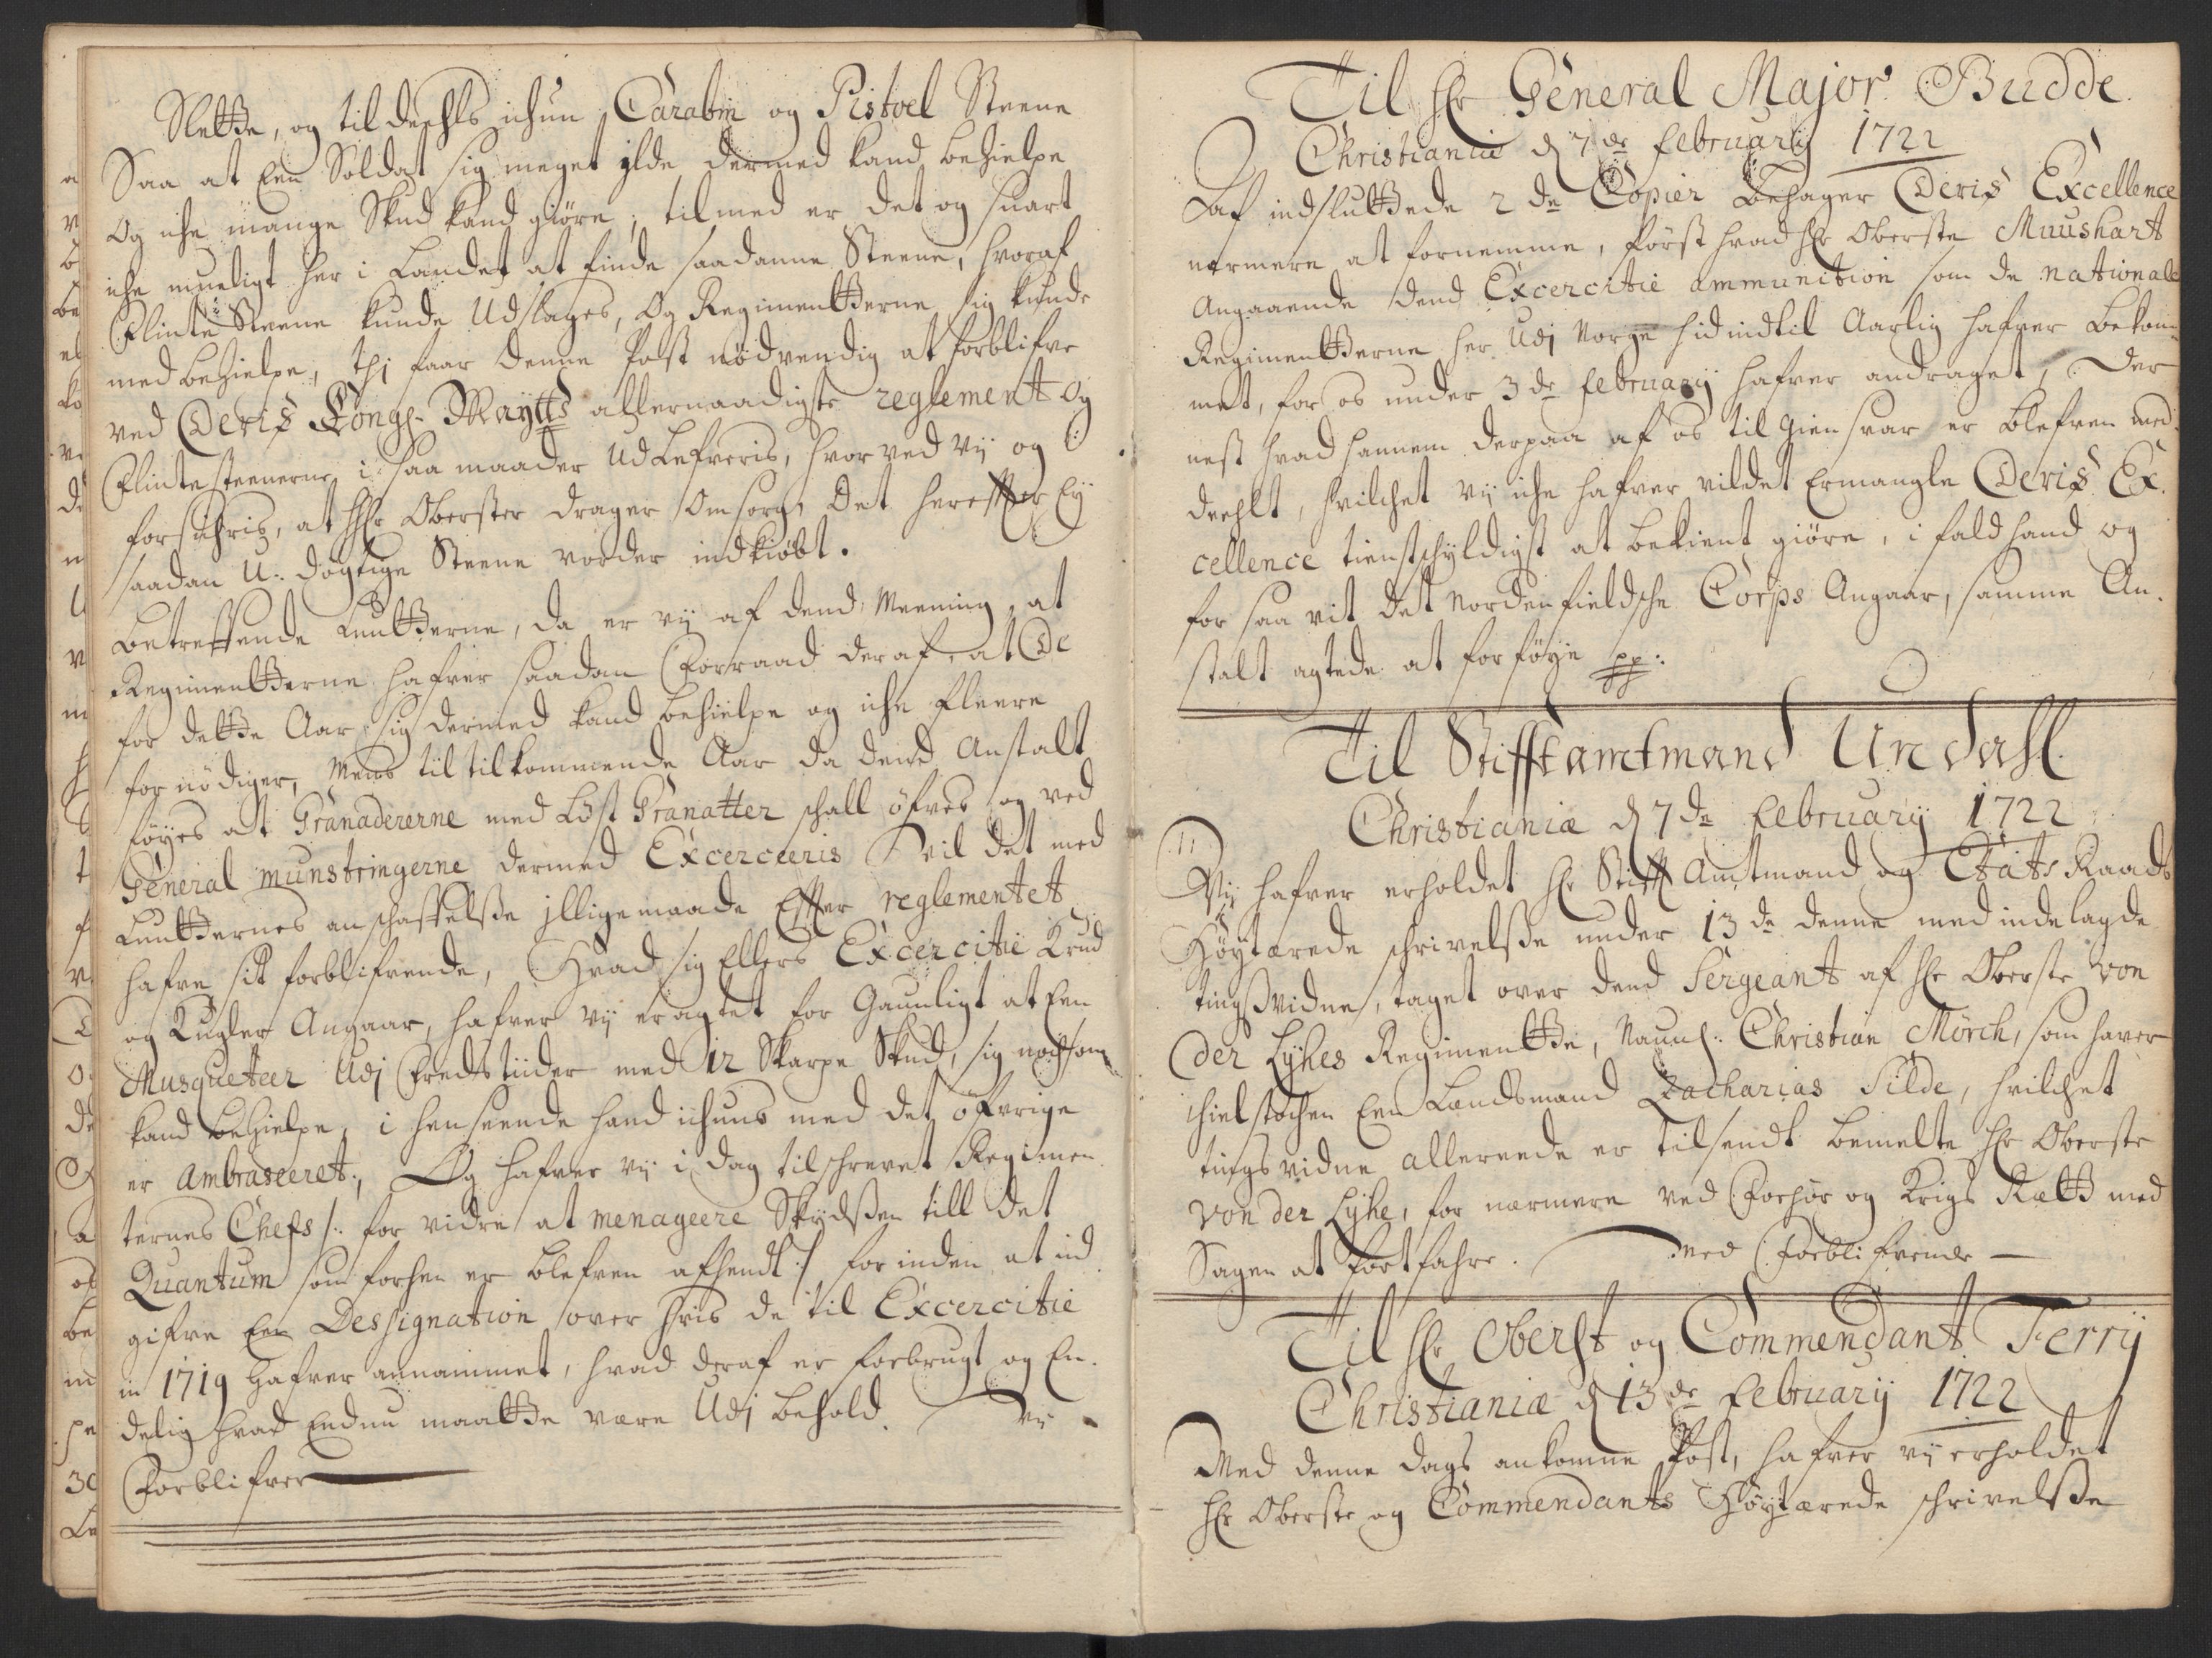 Slette, og til deehls ichun Carabin og Pistoel Steene
Saa at Een Soldat sig meget ilde dermed kand behielpe
Og iche mange Skud kand giöre, tilmed er det og suart
iche mueligt her i Landet at finde saadanne Steene, hvoraf
Flinte Steene kunde Udslages, Og Regimentterne sig kunde
med behielpe, thj faar denne Post nödvendig at forblifve
ved Deris Kongl. Mayts allernaadigste reglement Og
Flintesteenerne i saa maader Udlefveris, hvor ved vij og
forsichris, at Hr Oberster drager Omsorg, Det herefter Ey
saadan U. dögtige Steene vorder indkiöbt.
Betreffende Luntterne, da er vij af dend Meening, at
Regimentterne hafver saadan Forraad deraf, at De
for dette Aar sig dermed kand behielpe og iche fleere
fornödiger, Mens til tilkommende Aar da dend Anstalt
föyes at Granadererne med Löst Granatter schall öfves og ved
General munstringerne dermed Excerceeris vil det med
Luntternes anschaffelsse jlligemaade Efter reglementet
hafve sit forblifvende, Hvad sig Ellers Excercitie Krud
og Kugler Angaar, hafver vij eragtet for Gaunligt at Een
Musqueteer Udj Fredstiider med 12 Skarpe Skud, sig nochsom
kand behielpe, i henseende hand ichuns med det öfvrige
er Ambraseeret, Og hafver vij i dag tilschrevet Regimen
ternes Chefs /: for vidre at menageere Skydssen till det
Quantum som forhen er blefven afhendt :/ forinden at ind
gifve Een Dessignation over hvis de til Excercitie
in 1719 hafver annammet, hvad deraf er forbrugt og En.
delig hvad Endnu maatte være Udj behold. Vij
Forblifver
Til Hr General Major Budde.
Christianiæ d 7de February 1722
Af indsluttede 2de Copier behager Deris Excellence
nermere at fornemme, först hvad Hr Oberste Muushart
Angaaende dend Excercitie ammunition som de nationale
Regimentterne her Udj Norge hid indtil Aarlig hafver bekom
met, for os under 3de February hafver andraget, Der
nest hvad hannem derpaa af os til Giensvar er blefven med.
deehlt, hvilchet vij iche hafver vildet Ermangle Deris Ex.
cellence tienstschyldigst at bekient giöre, i fald hand og
for saa vit det Nordenfieldsche Corps Angaar, samme An.
stalt agtede at forföye pp:
Til Stifftamtmand Undahl.
Christianiæ d 7de February 1722
Vij hafver erholdet Hr Stifft Amtmand og Etats Raads
Höytærede schrivelsse under 13de denne med indelagde
tingsvidne, taget over dend Sergeant af Hr Oberste von
der Lyhes Regimentte, Naunl: Christian Mörch, som haver
ihielstochen Een Landsmand Zacharias Silde, hvilchet
tingsvidne allereede er tilsendt bemelte Hr Oberste
von der Lyhe, for nærmere ved Forhör og Krigs Rætt med
Sagen at fortfahre. Med Forblifvende
Til Hr Oberst og Commendant Ferry
Christianiæ d 13de February 1722
Med denne dags ankomne Post, hafver vij erholdet
Hr Oberste og Commendants Höytærede schrivelsse